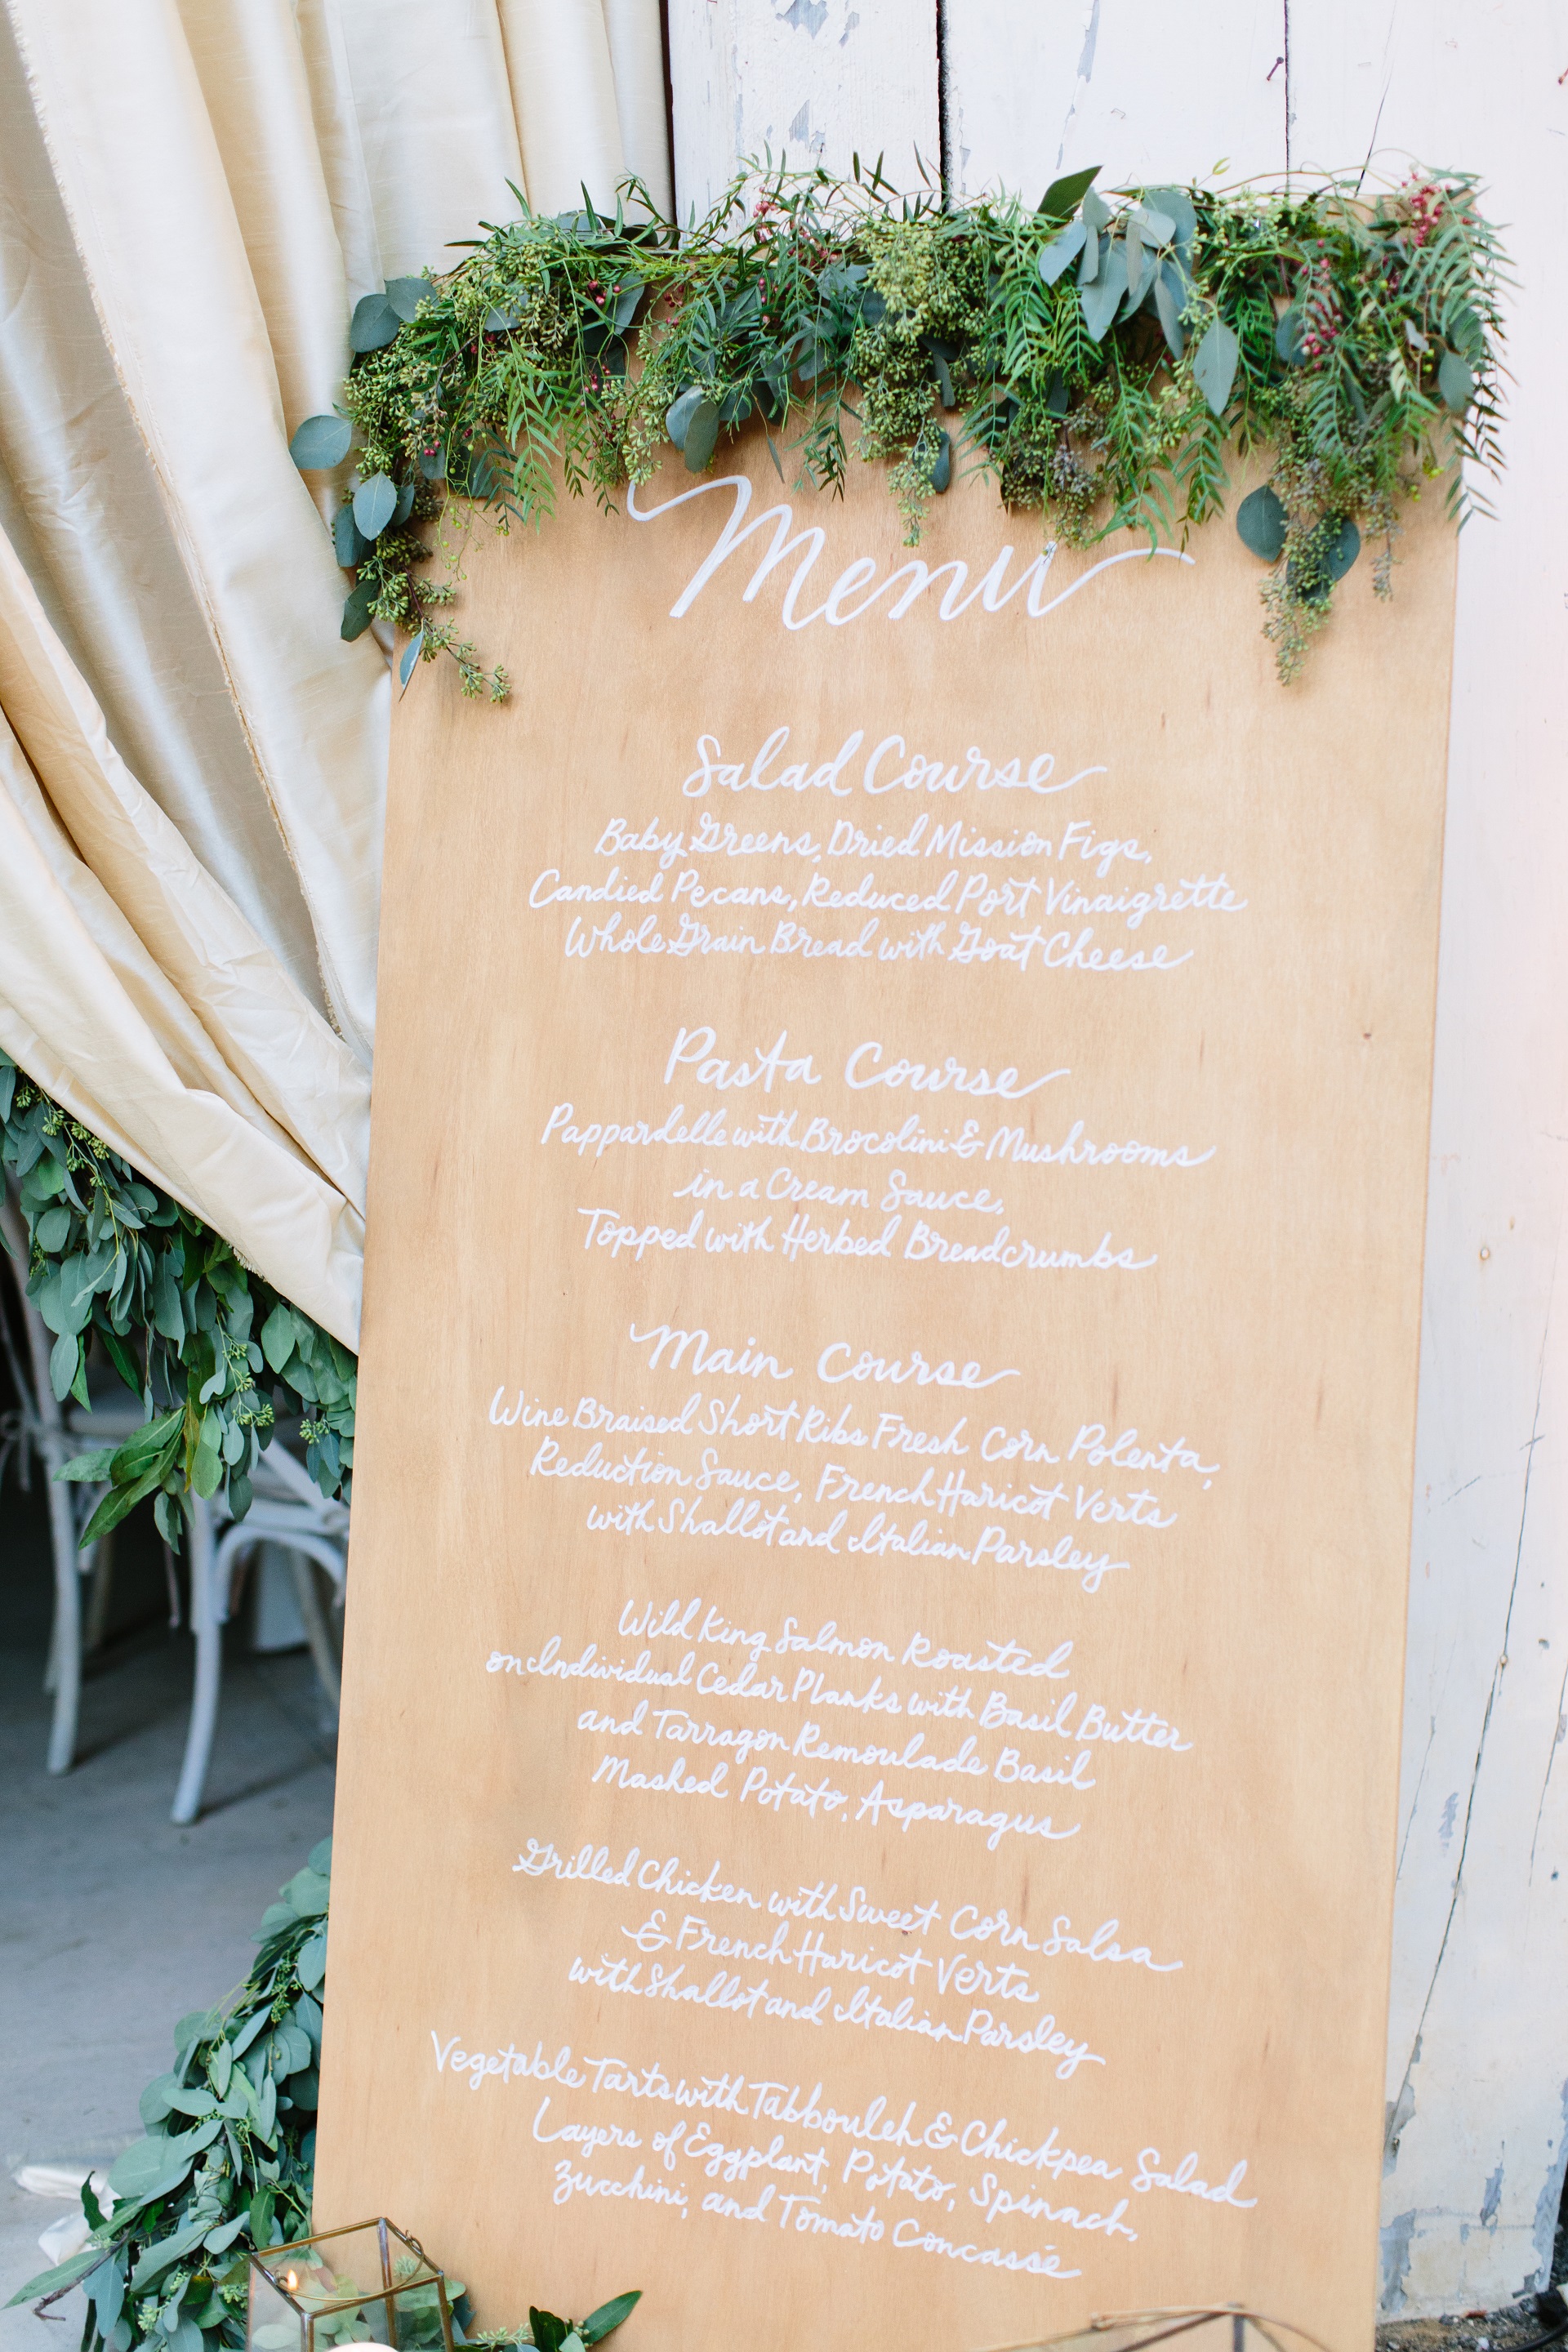 Menu
Salad Course
Baby Greens, Dried Mission Figs,
Candied Pecans, Reduced Port Vinaigrette
Whole Grain Bread with Goat Cheese
Pasta Course
Pappardelle with Brocolini & Mushrooms
in a Cream Sauce,
Topped with Herbed Breadcrumbs
Main Course
Wine Braised Short Ribs Fresh Corn Polenta,
Reduction Sauce, French Haricot Verts
with Shallot and Italian Parsley
Wild King Salmon Roasted
on Individual Cedar Planks with Basil Butter
and Tarragon Remoulade Basil
Mashed Potato, Asparagus
Grilled Chicken with Sweet Corn Salsa
& French Haricot Verts
with Shallot and Italian Parsley
Vegetable Tarts with Tabbouleh & Chickpea Salad
Layers of Eggplant, Potato, Spinach,
Zucchini, and Tomato Concassé